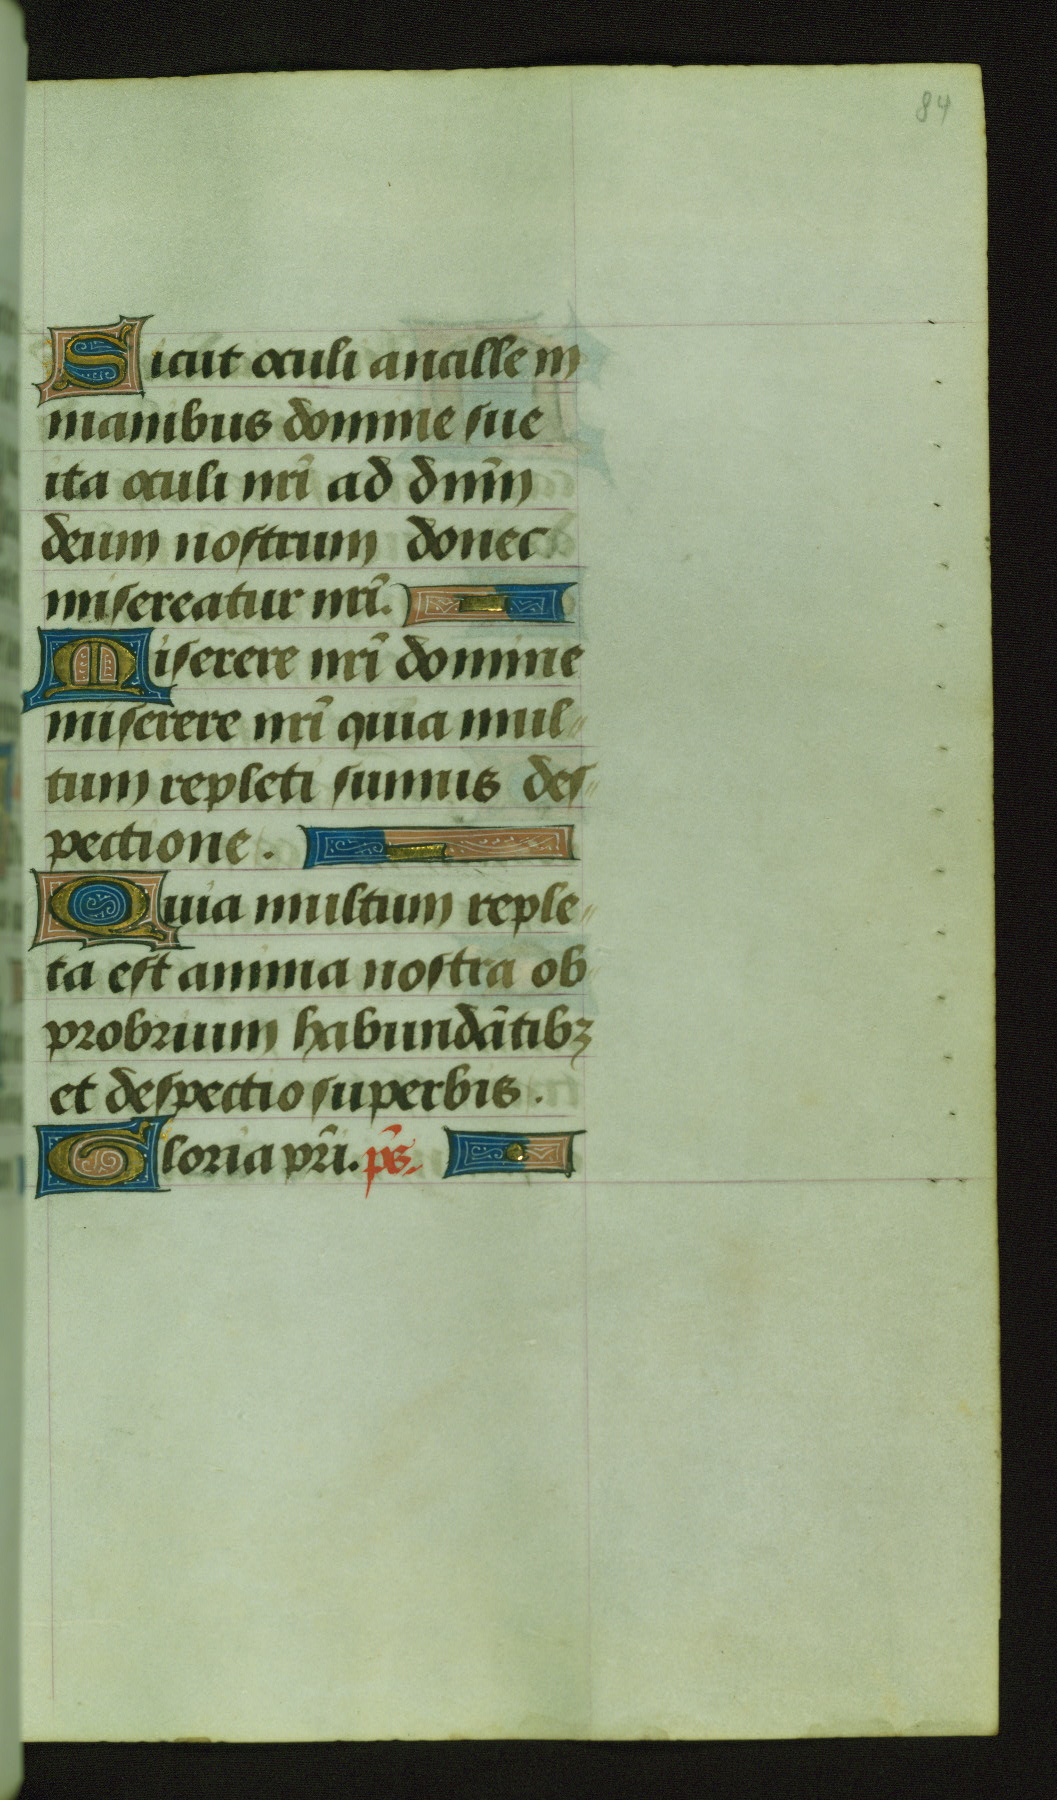 84
Sicut oculi ancille in
manibus domine sue
ita oculi nr̄i ad dn̄m
deum nostrum donec
misereatur nr̄i.
Miserere nr̄i domine
miserere nr̄i quia mul⸗
tum repleti sumus des⸗
pectione.
Quia multum reple⸗
ta est anima nostra ob⸗
probrium habundātibꝫ
et despectio superbis.
Gloria pr̄i. p̄s.